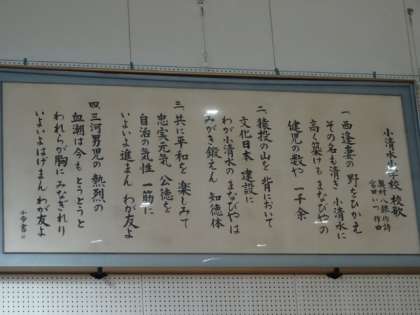 小清水小学校 校歌
奥村八銀 作詩
宮田いつ 作曲
一、西逢妻の 野をひかえ
その名も清き 小清水に
高く築けり まなびやの
健児の数や 一千余
二、猿投の山を 背において
文化日本 建設に
わが小清水の まなびやは
みがき鍛えん 知徳体
三、共に平和を 楽しみて
忠実元気 公徳を
自治の気性 一筋に
いよいよ進まん わが友よ
四、三河男児の 熱烈の
血潮は今も とうとうと
われらが胸に みなぎれり
いよいよはげまん わが友よ